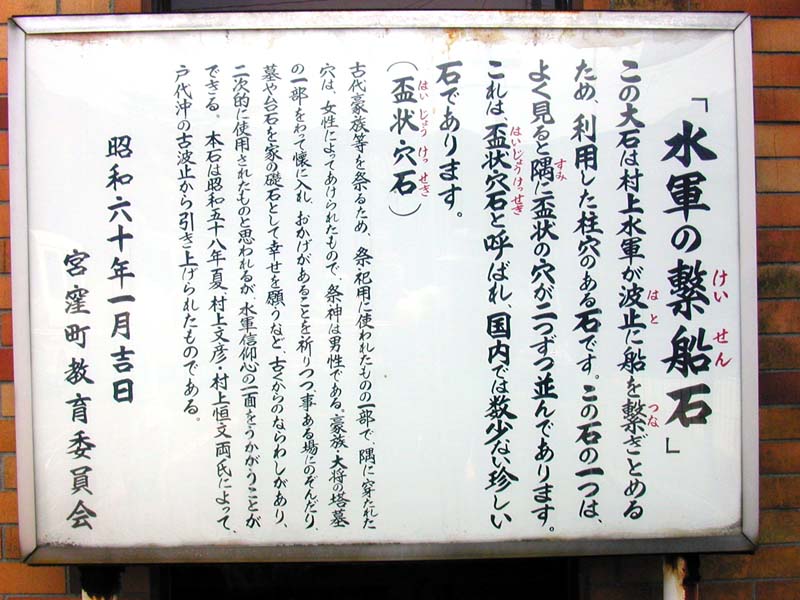 「水軍の繋船石」
けいせん
この大石は村上水軍が波止に船を繋ぎとめる
はと
つな
ため、利用した柱穴のある石です。この石の一つは、
よく見ると隅に盃状の穴が二つずつ並んであります。
すみ
これは、盃状穴石と呼ばれ、国内では数少ない珍しい
はいじょうけっせき
石であります。
(盃状・穴石)
はいじょうけっせき
古代豪族等を祭るため、祭・祀用に使われたものの一部で、隅に穿たれた
穴は、女性によってあけられたもので、祭神は男性である。豪族、大将の塔墓
の一部をわって懐に入れ、おかげがあることを祈りつつ、事ある場にのぞんだり、
墓や台石を家の礎石として幸せを願うなど、古くからのならわしがあり、
二次的に使用されたものと思われるが、水軍信仰心の一面をうかがうことが
できる。本石は昭和五十八年夏、村上文彦・村上恒文両氏によって、
戸代沖の古波止から引き上げられたものである。
昭和六十年一月吉日
宮窪町教育委員会